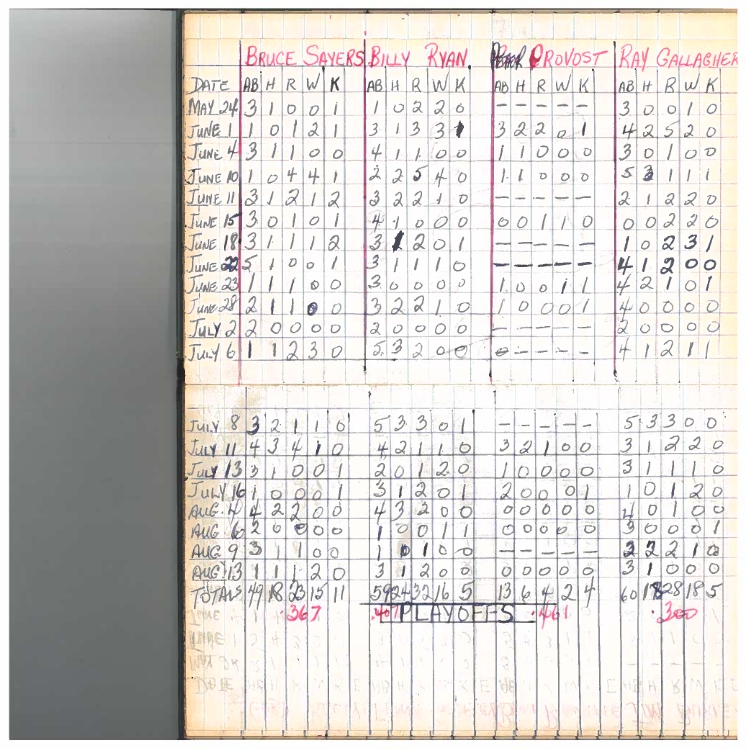 BRUCE SAYERS BILLY RYAN PROVOST RAY GALLAGHER
DATE AB H R W K AB H R W K AB H R W K AB H R W K
MAY 24 3 1 0 0 1 1 0 2 2 0 - - - - - 3 0 0 1 0
JUNE 1 1 0 1 2 1 3 1 3 3 1 3 2 2 0 1 4 2 5 2 0
JUNE 4 3 1 1 0 0 4 1 1 0 0 1 1 0 0 0 3 0 1 0 0
JUNE 10 1 0 4 4 1 2 2 5 4 0 1 1 0 0 0 5 3 1 1 1
JUNE 11 3 1 2 1 2 3 2 2 1 0 - - - - - 2 1 2 2 0
JUNE 15 3 0 1 0 1 4 1 0 0 0 0 0 1 1 0 0 0 2 2 0
JUNE 18 3 1 1 1 2 3 1 2 0 1 - - - - - 1 0 2 3 1
JUNE 22 5 1 0 0 1 3 1 1 1 0 - - - - - 4 1 2 0 0
JUNE 23 1 1 1 0 0 3 0 0 0 0 1 0 0 1 1 4 2 1 0 1
JUNE 28 2 1 1 0 0 3 2 2 1 0 1 0 0 0 1 4 0 0 0 0
JULY 2 2 0 0 0 0 2 0 0 0 0 - - - - 2 0 0 0 0
JULY 6 1 1 2 3 0 5 3 2 0 0 0 - - - - 4 1 2 1 1
JULY 8 3 2 1 1 0 5 3 3 0 1 - - - - - 5 3 3 0 0
JULY 11 4 3 4 1 0 4 2 1 1 0 3 2 1 0 0 3 1 2 2 0
JULY 13 3 1 0 0 1 2 0 1 2 0 1 0 0 0 0 3 1 1 1 0
JULY 16 1 0 0 0 1 3 1 2 0 1 2 0 0 0 1 1 0 1 2 0
AUG. 4 4 2 2 0 0 4 3 2 0 0 0 0 0 0 0 4 0 1 0 0
AUG 6 2 0 0 0 0 1 0 0 1 1 0 0 0 0 0 3 0 0 0 1
AUG 9 3 1 1 0 0 1 0 1 0 0 - - - - - 3 2 2 1 0
AUG 13 1 1 1 2 0 3 1 2 0 0 0 0 0 0 0 3 1 0 0 0
TOTALS 49 18 23 15 11 59 24 32 16 5 13 6 4 2 4 60 18 28 18 5
.367 .407 PLAYOFFS .461 .300